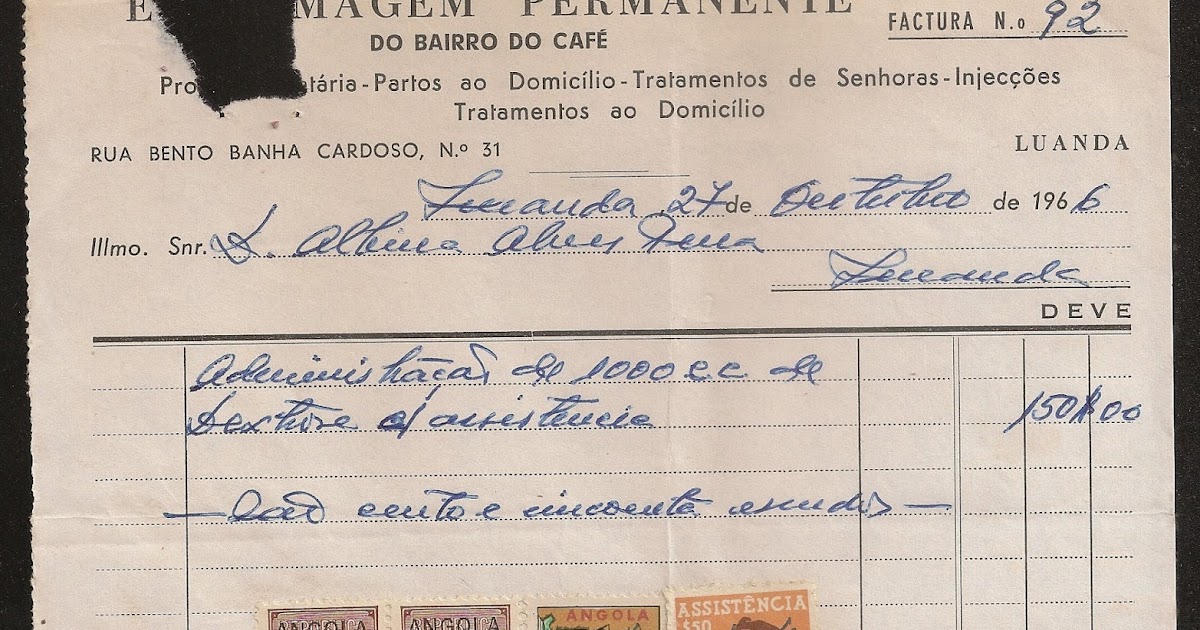 MAGEM PERMANENTE
FACTURA N.º 92
DO BAIRRO DO CAFÉ
Pro tária-Partos ao Domicílio-Tratamentos de Senhoras-Injecções
Tratamentos ao Domicílio
RUA BENTO BANHA CARDOSO, N.º 31
LUANDA
Luanda 27 de Outubro de 1966
Illmo. Snr. D. Albina Alves
Luanda
DEVE
Administração de 1000 c.c. de
Dextrose c/ assistência 150$00
— São cento e cincoenta escudos —
ANGOLA ANGOLA ANGOLA ASSISTÊNCIA
$50